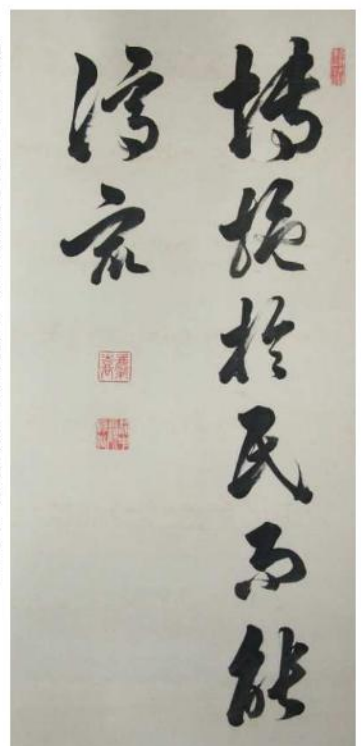 博施於民而能
濟衆